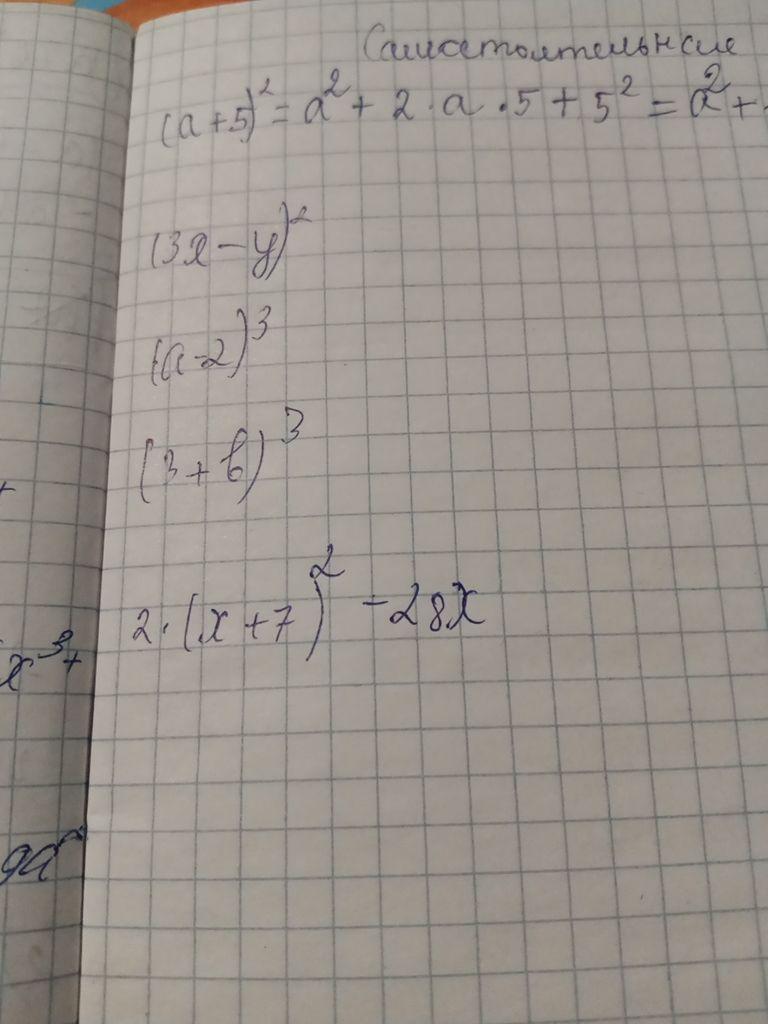 Самостоятельная
(a+5)² = a² + 2·a·5 + 5² = a² +
(3x - y)²
(a-2)³
(3+b)³
2·(x+7)² - 28x
x³+
9a²